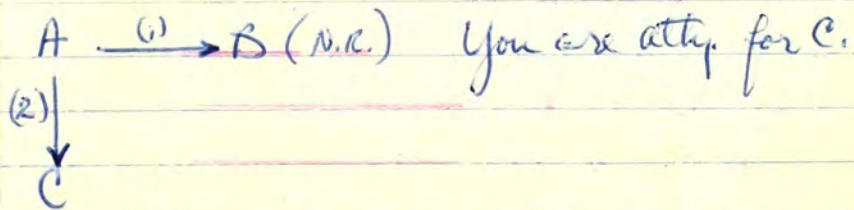 A (1) B (N.R.) You are atty. for C.
(2)
C